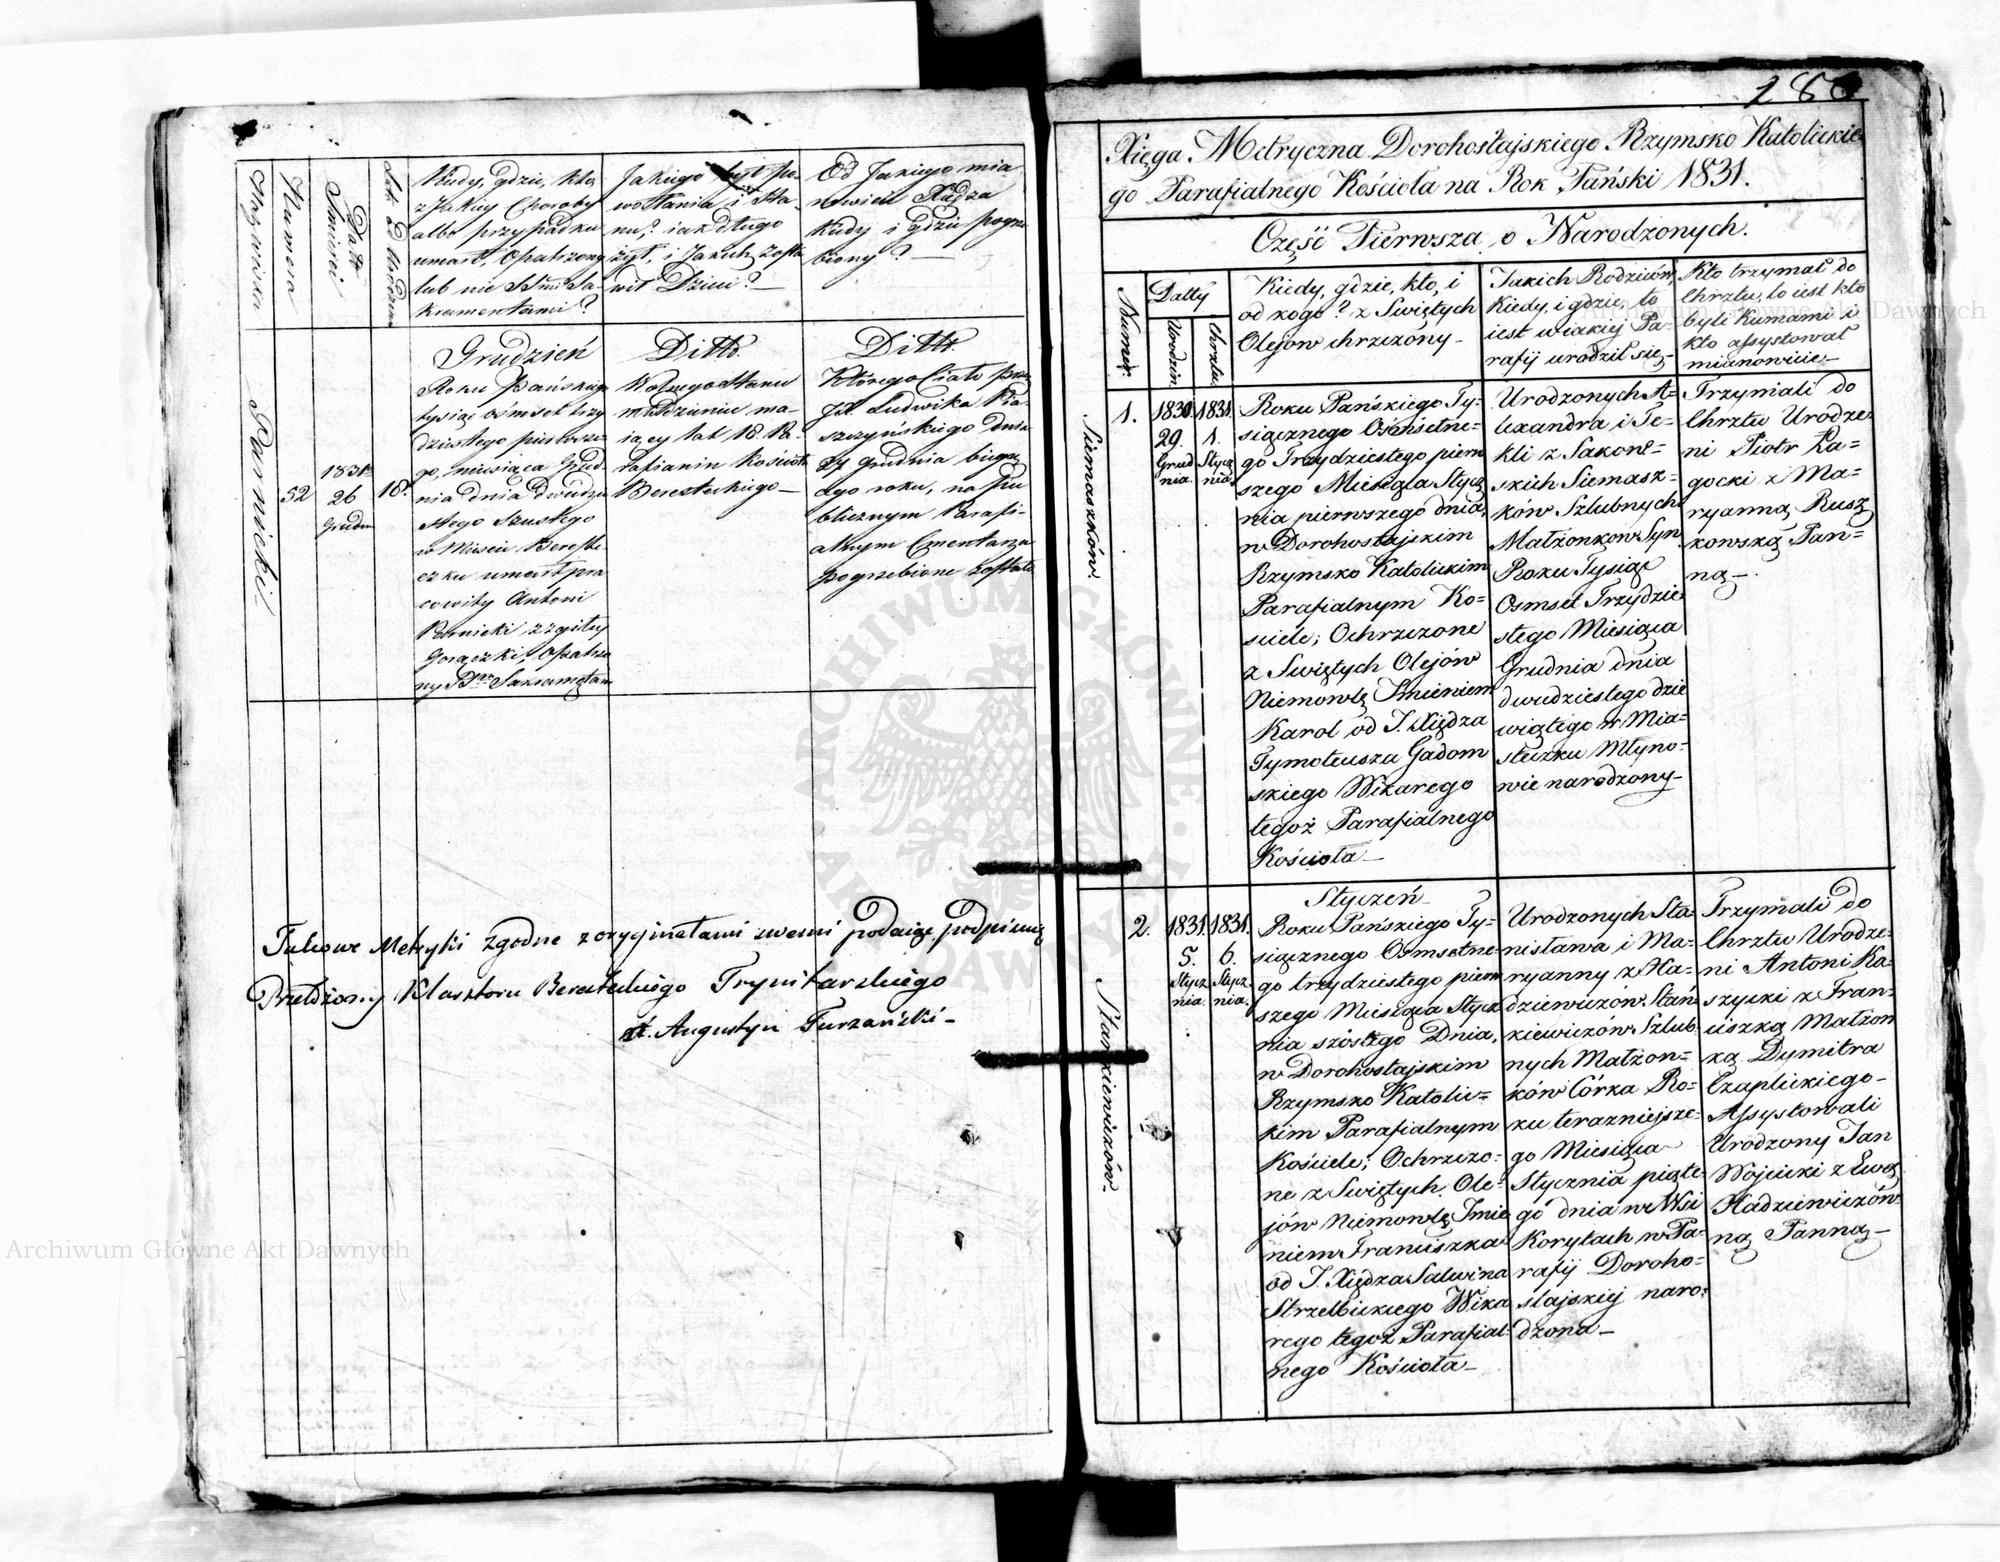 Nazwiska
Numera
Datt
Śmierci
Kiedy, gdzie, kto,
z Jakiey Choroby
albo przypadku
umarł, Opatrzony
lub nie SSmi Sa-
kramentami?
Jakiego był po-
wołania i Sta-
nu? iak długo
żył, i Jakich zosta
wił Dzieci?
Od Jakiego mia
nowicie Xiędza
Kiedy i gdzie pogrze
biony?
Parnicki
52
1831
26
Grudn
18.
Grudzień
Roku Pańskiego
tysiąc ośmset trzy
dziestego pierwsze-
go, miesiąca Grud-
nia dnia dwudzie
stego szustego
w Mieście Bereste-
czku umarł pra
cowity Antoni
Parnicki zzgniłey
gorączki, Opatrzo
ny Sakramętam
Ditto.
Wolnego Stanu
młodzieniec ma-
iący lat 18. Pa-
rafianin Kościoła
Beresteckiego—
Ditto.
Którego Ciało przez
JX Ludwika Pia-
szczyńskiego dnia
grudnia bieżą-
cego roku, na Pu
blicznym Parafi-
alnym Cmentarzu
pogrzebione zostało
Takowe Metryki zgodne z oryginałami swemi podaię podpisuię
Przełożony Klasztoru Beresteckiego Trynitarskiego
X. Augustyn Turzański—
Xięga Metryczna Dorohostajskiego Rzymsko Katolickie
go Parafialnego Kościoła na Rok Pański 1831.
Część Pierwsza o Narodzonych.
Numer.
Datty
Urodzin.
Chrztu.
Kiedy, gdzie, kto, i
od kogo? z Swiętych
Olejow chrzczony—
Jakich Rodziców,
Kiedy, i gdzie, to
iest w iakiej Pa-
rafij urodził się—
Kto trzymał do
Chrztu, to iest kto
byli Kumami i
kto assystował
mianowicie—
Siemaszków.
1.
1830.
29.
Grud
nia
1831.
1.
Stycz
nia
Roku Pańskiego Ty-
siącznego Osmsetne-
go Trzydziestego pierw
szego Miesiąca Stycz
nia pierwszego dnia,
w Dorohostajskim
Rzymsko Katolickim
Parafialnym Ko=
sciele; Ochrzczone
z Swiętych Olejów
Niemowlę Imieniem
Karol od J. Xiędza
Tymoteusza Gadom
skiego Wikarego
tegoż Parafialnego
Kościoła—
Urodzonych A=
lexandra i Te-
kli z Sakow=
skich Siemasz=
ków Szlubnych
Małżonkow Syn
Roku Tysiąc
Osmset Trzydzie
stego Miesiąca
Grudnia dnia
dwudziestego dzie
wiątego w Mia=
steczku Młyno-
wie narodzony—
Trzymali do
Chrztu Urodze=
ni Piotr Ra=
gocki z Ma=
ryanną Rusz
kowską Pan=
ną—.
Stankiewiczów.
2.
1831.
5.
Stycz
nia.
1831.
6.
Stycz
nia.
Styczeń—
Roku Pańskiego Ty-
siącznego Osmsetne
go trzydziestego pierw
szego Miesiąca Stycz
nia szóstego Dnia,
w Dorohostajskim
Rzymsko Katolic=
kim Parafialnym
Kościele; Ochrzczo-
ne z Swiętych Ole-
jów Niemowlę Imie
niem Franciszka
od J. Xiędza Salwina
Strzelbickiego Wika
rego tegoż Parafial
nego Kościoła—
Urodzonych Sta
nisława i Ma-
ryanny z Ha-
dziewiczów Stań
kiewiczów Szlub-
nych Małżon=
ków Córka Ro=
ku terazniejsze-
go Miesiąca
Stycznia piąte
go dnia we Wsi
Korytach w Pa-
rafij Doroho=
stajskiej naro-
dzona—
Trzymali do
Chrztu Urodze-
ni Antoni Ka-
szycki z Fran-
ciszką Małżon
ką Dymitra
Czaplickiego—
Assystowali
Urodzony Jan
Wojcicki z Ewą
Hadziewiczów
ną Panną—
Archiwum Główne Akt Dawnych
Archiwum Główne Akt Dawnych
ARCHIWUM GŁÓWNE AKT DAWNYCH